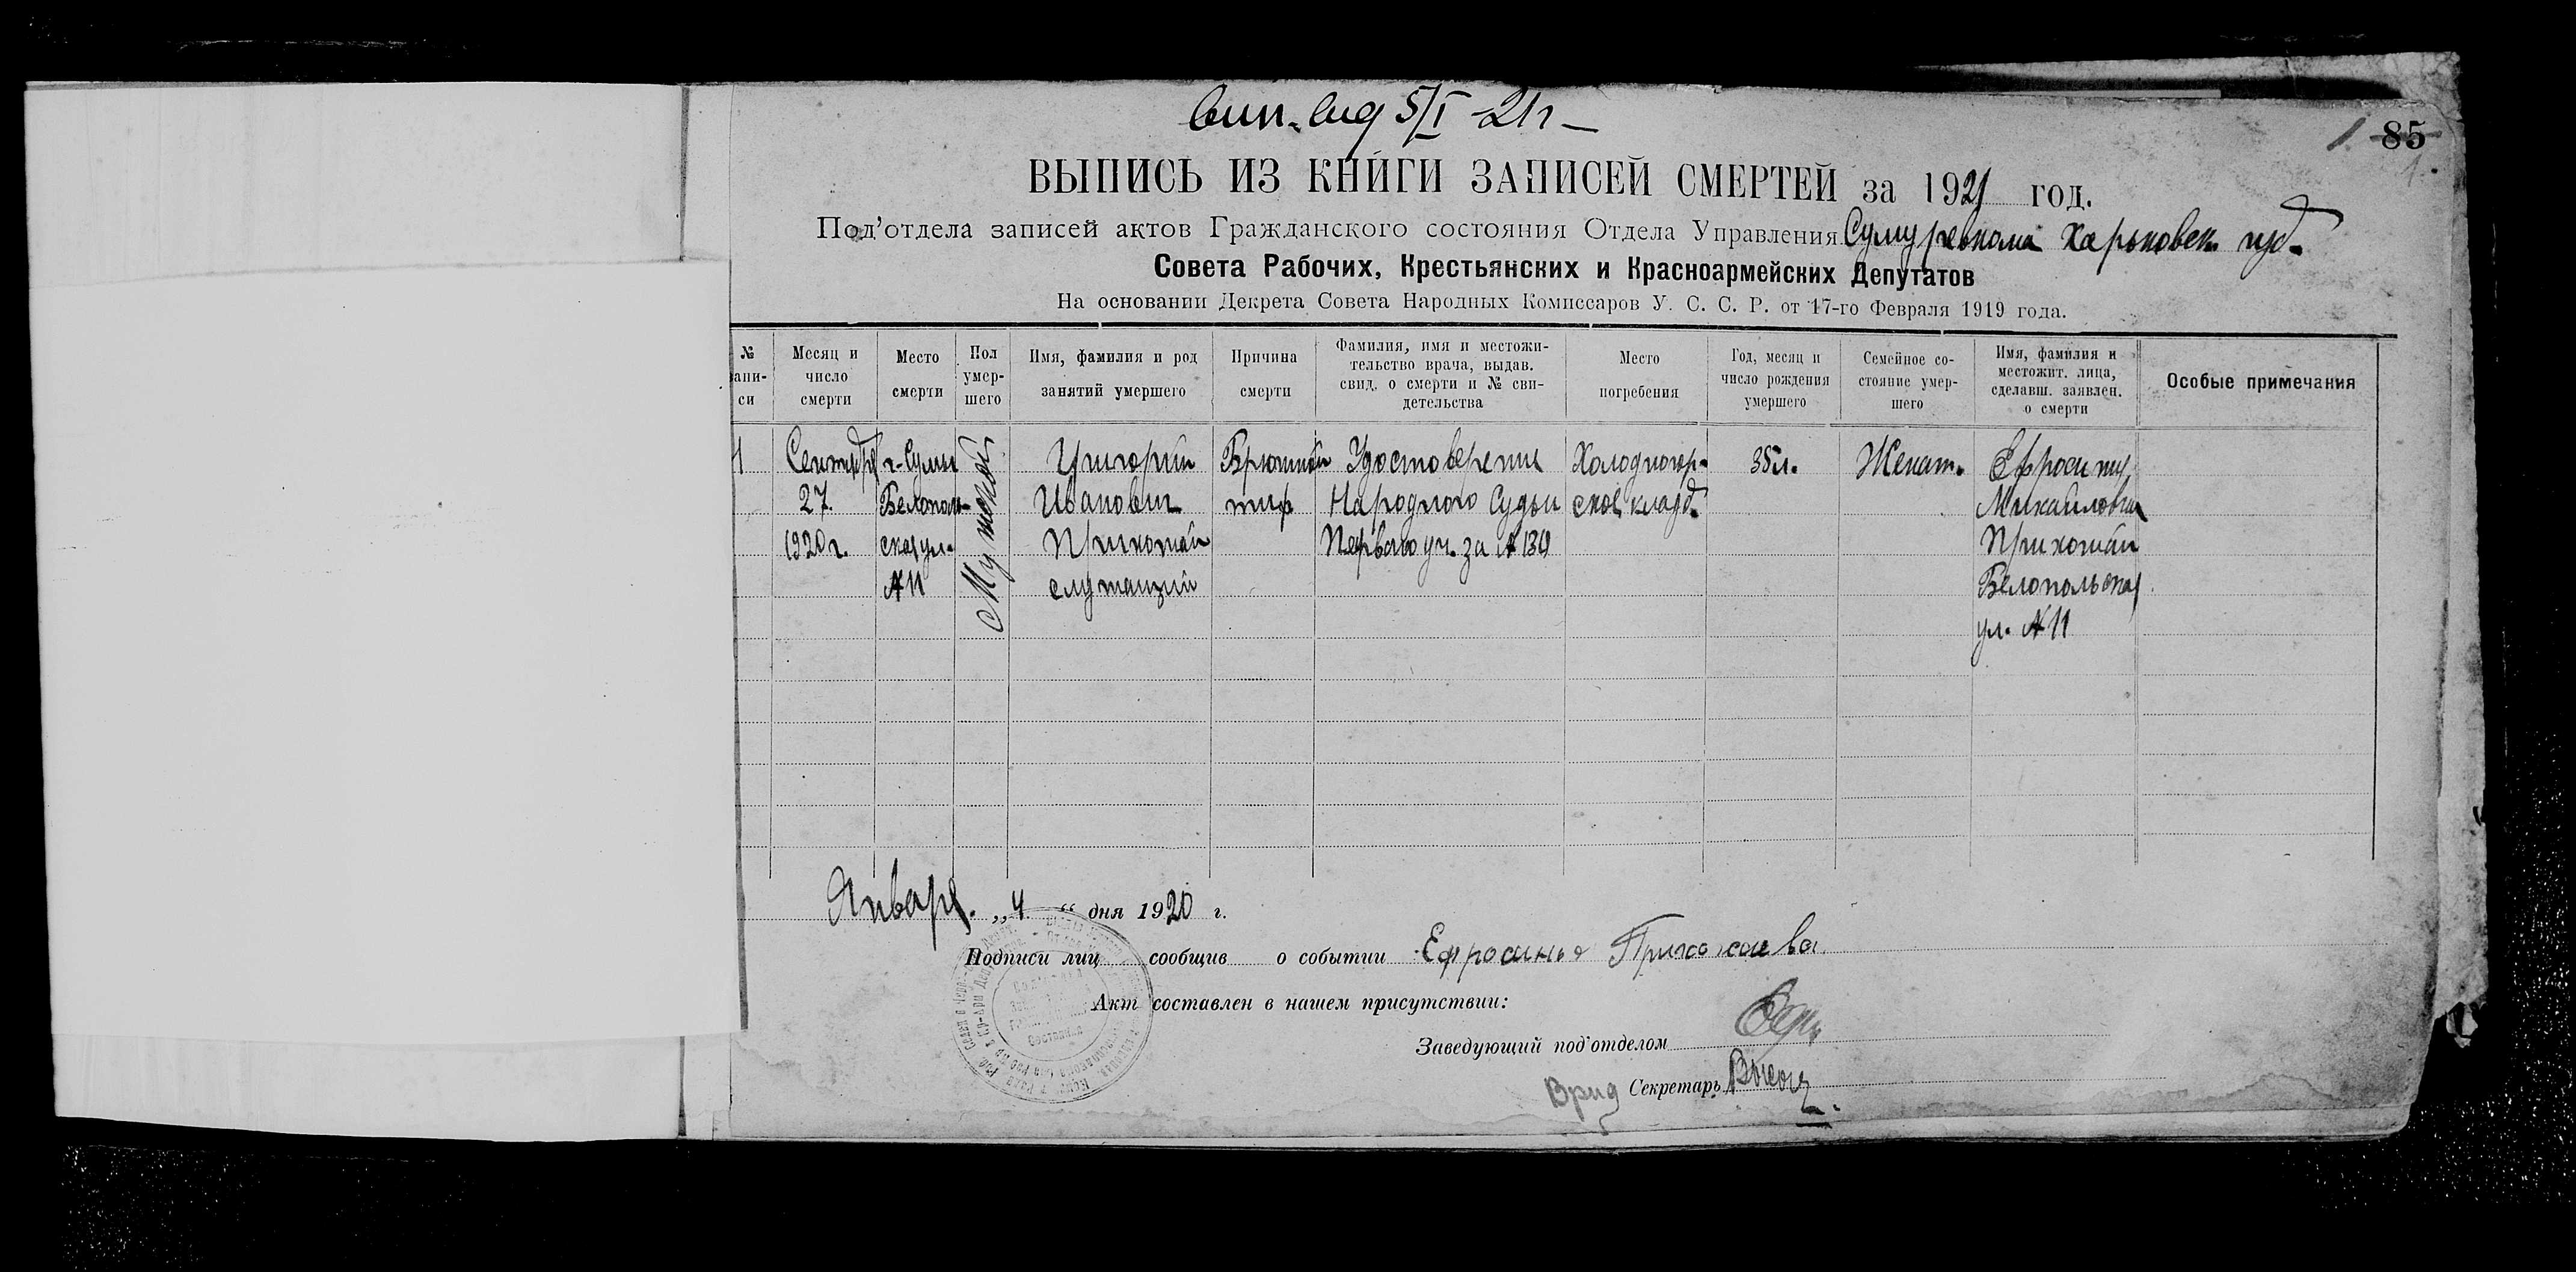 вып. вид 5/I -21г -
1. 85
1.
ВЫПИСЬ ИЗ КНИГИ ЗАПИСЕЙ СМЕРТЕЙ за 1921 год.
Под'отдела записей актов Гражданского состояния Отдела Управления Сумуревкома Харьковск. губ.
Совета Рабочих, Крестьянских и Красноармейских Депутатов
На основании Декрета Совета Народных Комиссаров У. С. С. Р. от 17-го Февраля 1919 года.
№ запи-си
Месяц и число смерти
Место смерти
Пол умер-шего
Имя, фамилия и род занятий умершего
Причина смерти
Фамилия, имя и местожи-тельство врача, выдав. свид. о смерти и № сви-детельства
Место погребения
Год, месяц и число рождения умершего
Семейное со-стояние умер-шего
Имя, фамилия и местожит. лица, сделавш. заявлен. о смерти
Особые примечания
1
Сентября
27.
1920 г.
г. Сумы
Белополь-
ская ул.
№ 11
Мужской
Григорий
Иванович
Прихожай
служащий
Брюшной
тиф
Удостоверение
Народного Судьи
Первого уч. за № 139
Холодногор-
ское кладб.
35 л.
Женат.
Ефросиния
Михайловна
Прихожай
Белопольская
ул. № 11
Января „4“ дня 1920 г.
Подписи лиц сообщив о событии Ефросинья Прихожаева
Акт составлен в нашем присутствии:
Заведующий под'отделом
Врид Секретарь